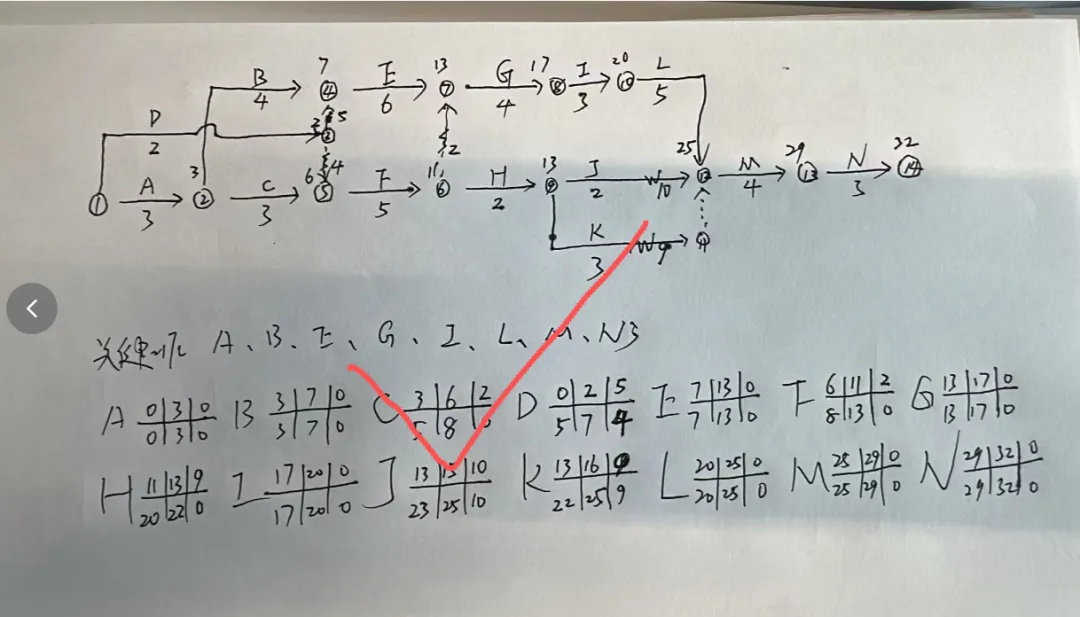 7 13 17 20
B E G I L
4 6 4 3 5
④ ⑦ ⑧ ⑩
D 2 5
2 ③
3 6 4 11 2 13 25 29 32
A C F H J M N
① ② ⑤ ⑥ ⑨ ⑫ ⑬ ⑭
3 3 5 2 2 10 4 3
K 9 ⑪
3
A、B、E、G、I、L、M、N
A 0 3 0 B 3 7 0 C 3 6 2 D 0 2 5 E 7 13 0 F 6 11 2 G 13 17 0
0 3 0 3 7 0 5 8 0 5 7 4 7 13 0 8 13 0 13 17 0
H 11 13 9 I 17 20 0 J 13 15 10 K 13 16 9 L 20 25 0 M 25 29 0 N 29 32 0
20 22 0 17 20 0 23 25 10 22 25 9 20 25 0 25 29 0 29 32 0